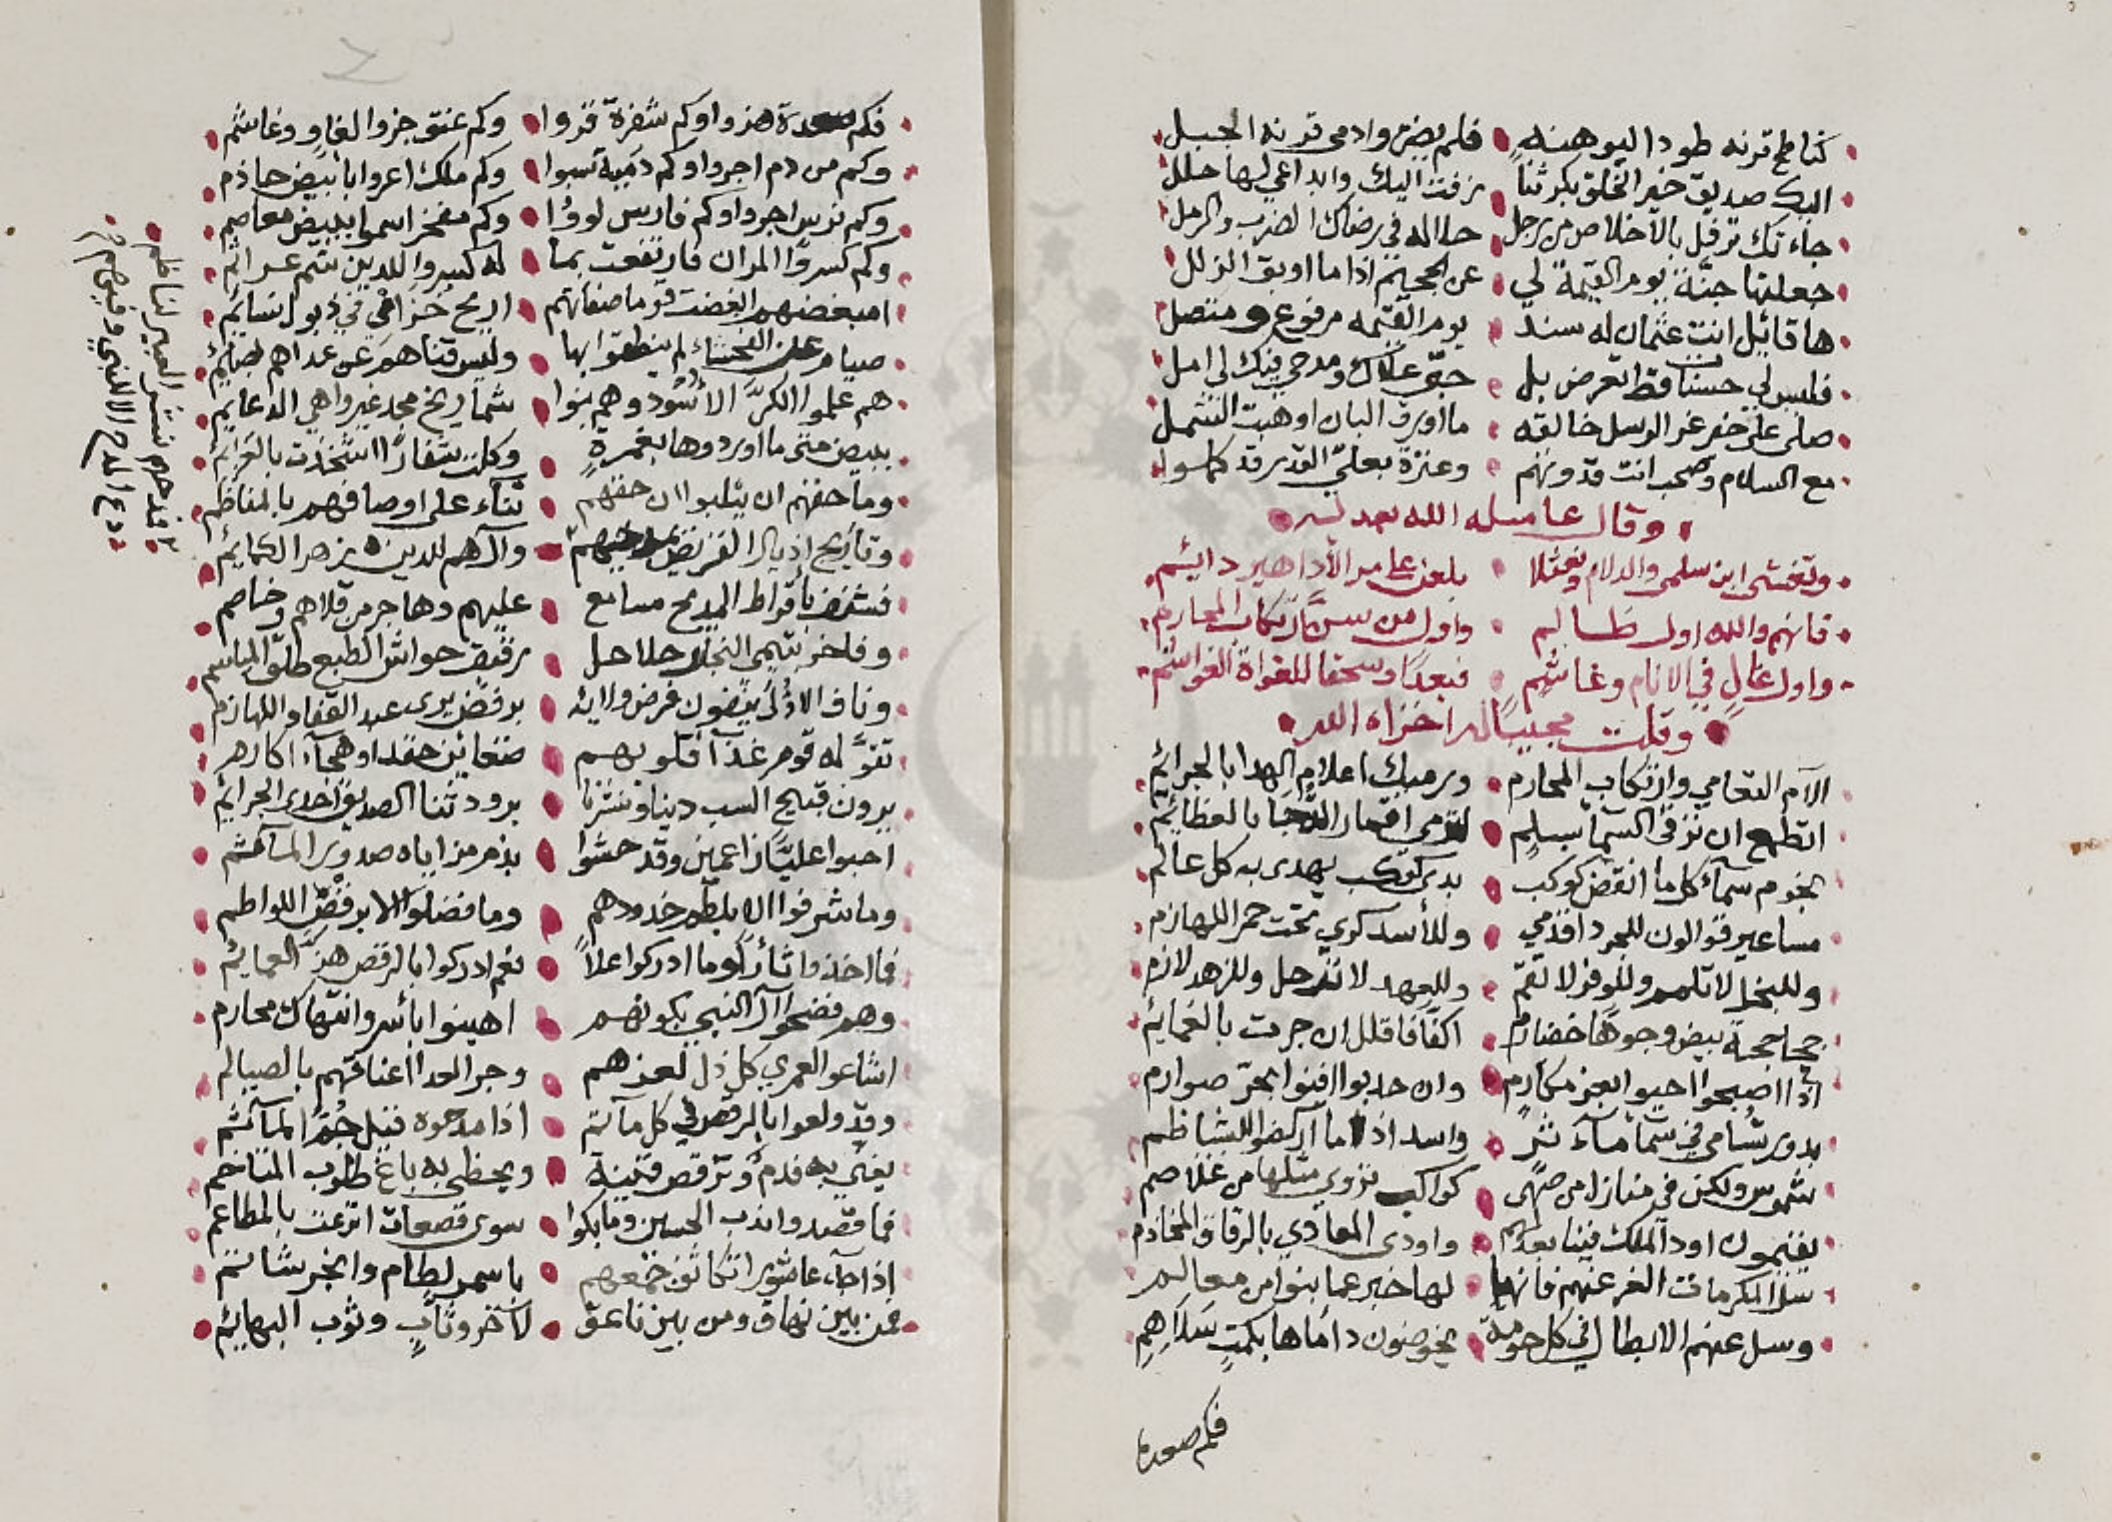 كناطح قرنه طودا ليوهنه فلم يضر وادمى قرنه الجبل
اليك صديق خير الخلق بكر ثنا زفت اليك وابداعي لها حلل
جاءتك ترفل بالاخلاص من رجل حلا له في رضاك الضرب والرمل
جعلتها جنة يوم القيمة لي عن الجحيم اذا ما اوبق الزلل
ها قائل انت عثمان له سند يوم القيمه مرفوع ومتصل
فليس لي حسنات قط اعرض بل حبي علاك ومدحي فيك لي امل
صلى على خير غر الرسل خالقه ما اورق البان او هبت الشمل
مع السلام وصحب انت قدوتهم وعترة بعلي القدر قد كملوا
وقال عامله الله بعدله
وتغشى ابن سلمى والدلام ونعثلا بلعن على مر الأداهير دائم
فانهم والله اول ظالم واول من سن ارتكاب المحارم
واول غال في الانام وغاشم فبعدا وسحقا للغواة الغواشم
وقلت مجيبا له اخزاه الله
الام التعامي وارتكاب المحارم ورميك اعلام الهدا بالجرائم
اتطمع ان ترقى السما بسلم لترمي اقمار الدجا بالعظائم
نجوم سماء كل ما انقض كوكب بدى كوكب يهدى به كل عالم
مساعير قوالون للجرد اقدمي وللأسد كري تحت حمر اللهازم
وللبخل لا تلمم وللوفر لا تقم وللعهد لا ترحل وللزهد لازم
جحاجحة بيض وجوها خضارم اكفا فاقلل ان جرت بالغمائم
اذا اصبحوا احيوا بعز مكارم وان حدبوا افنوا بحر صوارم
بدور تسامى في سما ماء وأسد اذا ما اركضوا للشياظم
شموس ولكن في منازل من كواكب تزوي مثلها من غلاصم
يقيمون اود الملك فينا بعدلهم واودى المعادي بالرقاق المخاذم
سل المكرمات الغر عنهم فانها لها خبر عما بنوا من معالم
وسل عنهم الابطال في كل حومة يخوضون دأماها بكمت سلاهم
فكم صعدة
فكم صعدة هزوا وكم شفرة فروا وكم عنق جزوا لغاو وغاشم
وكم من دم اجروا وكم دمية سبوا وكم ملك اعروا بابيض حاذم
وكم ترس اجروا وكم فارس لووا وكم مفخر اسموا ببيض معاصم
وكم كسروا المران فارتفعت بما له كسروا للدين شم عرائم
امبغضهم ابغضت قوما صفاتهم اريح خزامى في ذيول نسائم
صيام عن الفحشاء لم ينطقوا بها وليس قناهم عن عداهم بصائم
هم علموا الكر الأسود وهم بنوا شماريخ مجد غير واهي الدعايم
ببيض متى ما اوردوها بغمرة وكلت شفارا اشحذت بالغرائم
وما حقهم ان يثلبوا ان حقهم ثناء على اوصافهم بالمناظم
وتأريج اذيال القريض والآلهم للدين زهر الكمائم
فشنف باقراط المديح مسامع عليهم وهاجر من قلاهم وخاصم
وفاخر بتيمي النجار حلاحل رقيق حواشي الطبع طلق المباسم
وناف الاولى يبغون فرض ولائه برفض يرى عبد القفا واللهازم
تقول له قوم غذا قلوبهم ضغائن حقد او هجاء اكارم
يرون قبيح السب دينا ونشرنا برود ثنا الصديق احدى الجرائم
احبوا عليا زاعمين وقد حشوا بذم مزاياه صدور المآتم
وما شرفوا الا بلطم خدودهم وما فضلوا الا برفض اللواطم
فما اخذوا ثارا وما ادركوا علا نعم ادركوا بالرقص هز العمائم
وهم فضحوا آل النبي بكونهم اهينوا بأسر وانتهاك محارم
اشاعوا لعمري كل ذل لعزهم وجر العدا اعناقهم بالصيالم
وقد ولعوا بالرقص في كل مآتم اذا مدحوه قيل جم المآثم
يغني به فدم وترقص قينة ويحظى به باغ طلوب المناخم
فما قصدوا ندب الحسين وما بكوا سوى قصعات اترعت بالمطاعم
اذا جاء عاشورا تكاثف جمعهم باسمر لطام وابخر شاتم
فمن بين نهاق ومن بين ناعق لآخر وثاب وثوب البهائم
فدحهم نشر العبير لناظم
ودع المدح الا للنبي